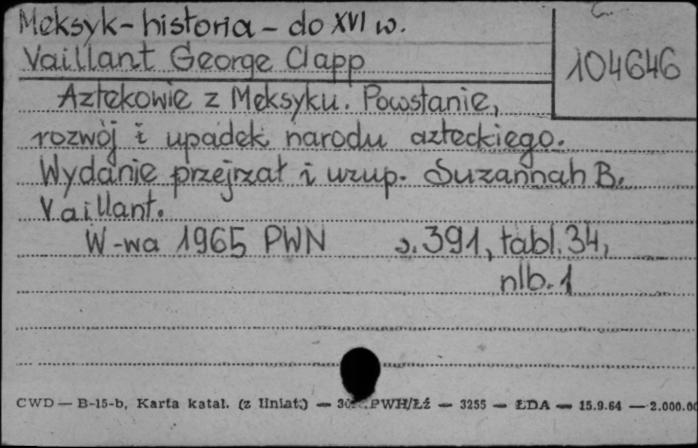 Meksyk - historia - do XVI w.
C.
Vaillant George Clapp
104646
Aztekowie z Meksyku. Powstanie,
rozwój i upadek narodu azteckiego.
Wydanie przejrzał i uzup. Suzannah B.
Vaillant.
W-wa 1965 PWN s. 391, tabl. 34,
nlb. 1
CWD — B-15-b, Karta katal. (z liniat.) — PWH/Łź — 3255 — ŁDA — 15.9.64 — 2.000.00